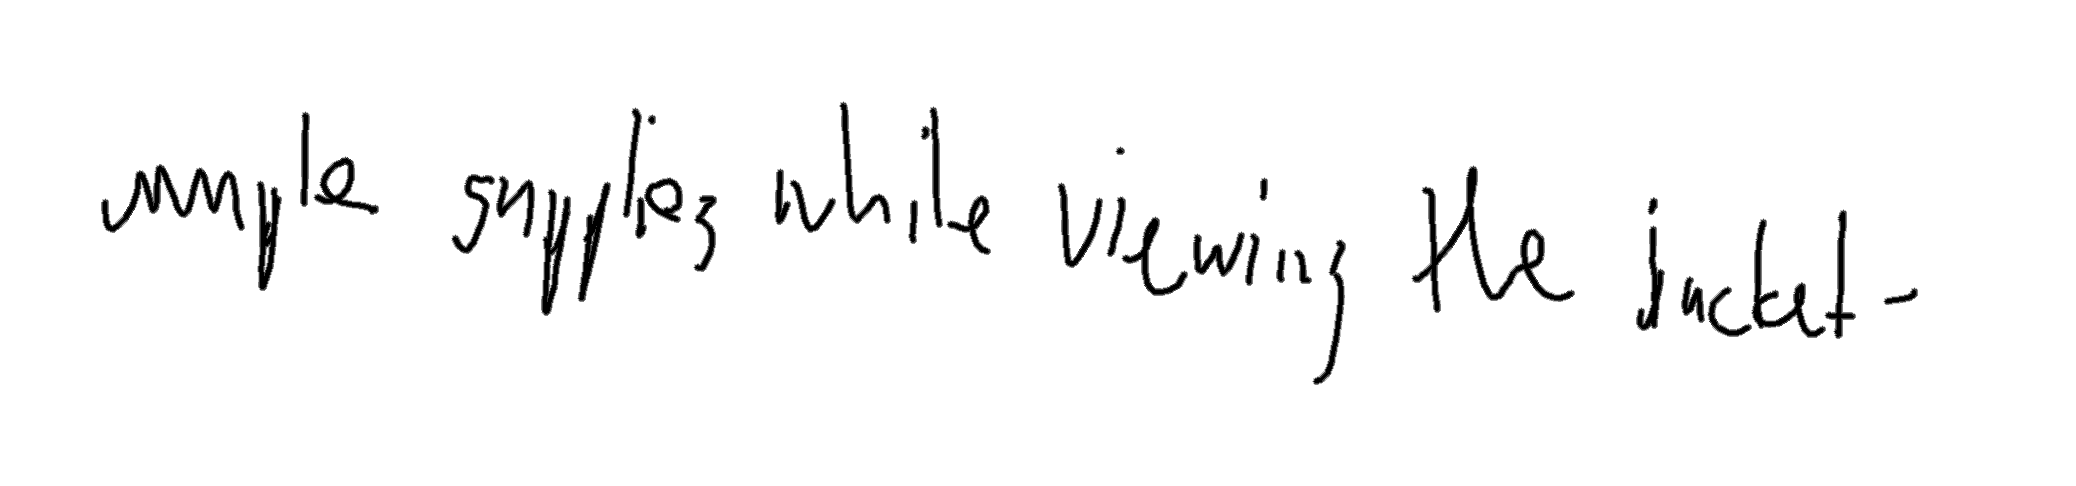 ample supplies while viewing the jacket-